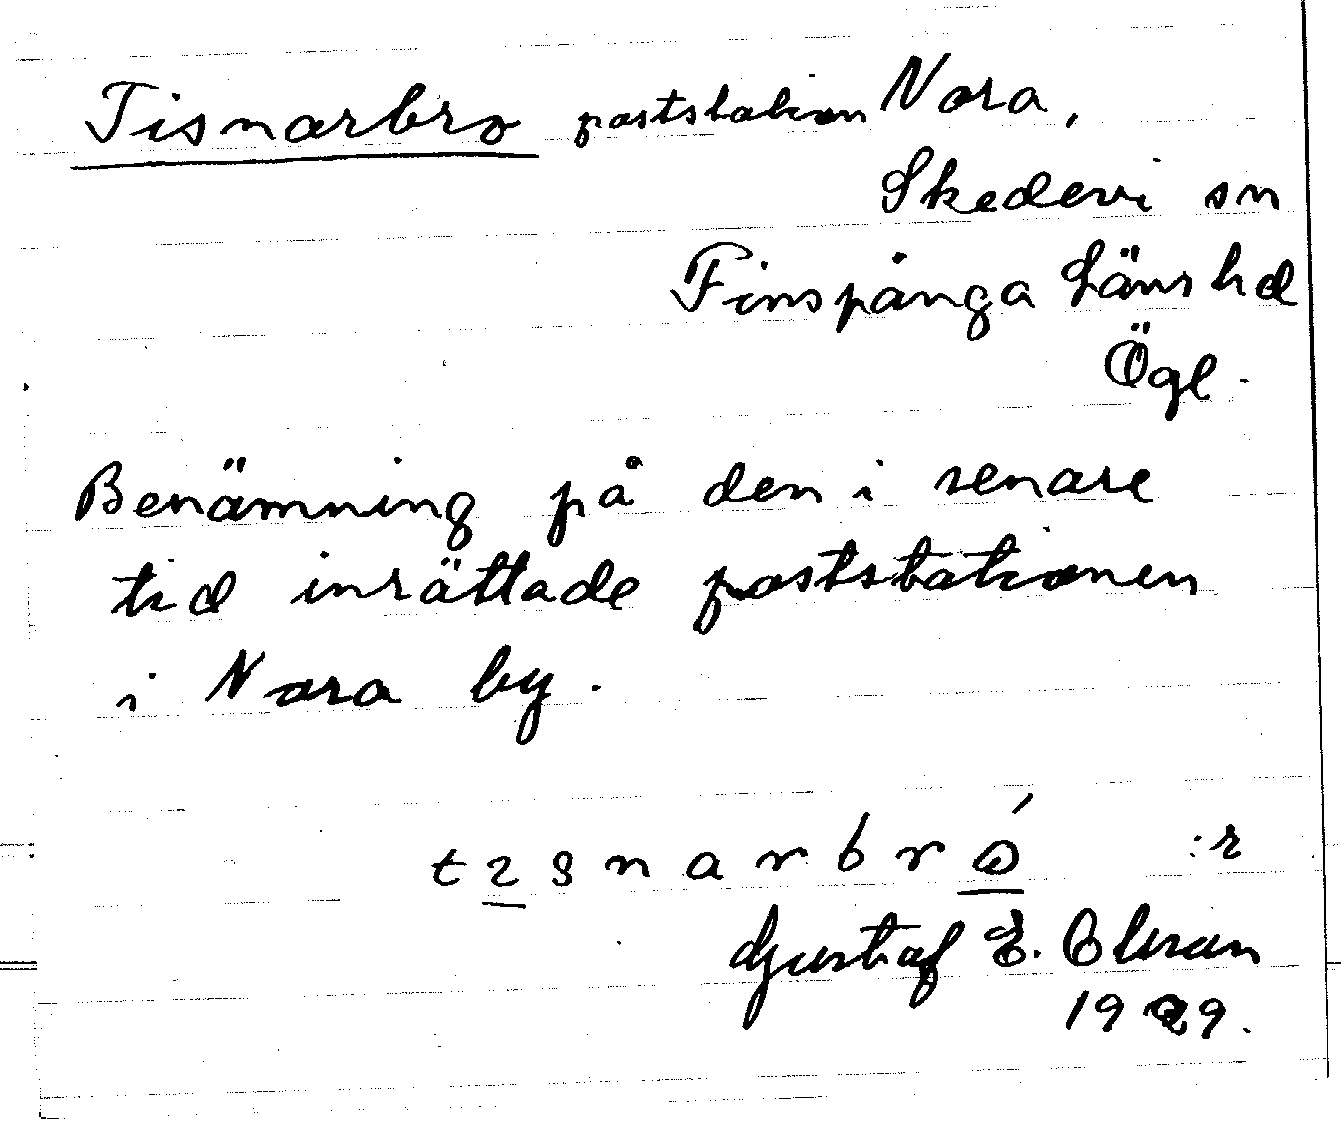 Tisnarbro poststation Nora,
Skedevi sn
Finspånga Läns hd
Ögl.
Benämning på den i senare
tid inrättade poststationen
i Nora by.
Gustaf E.
1929.